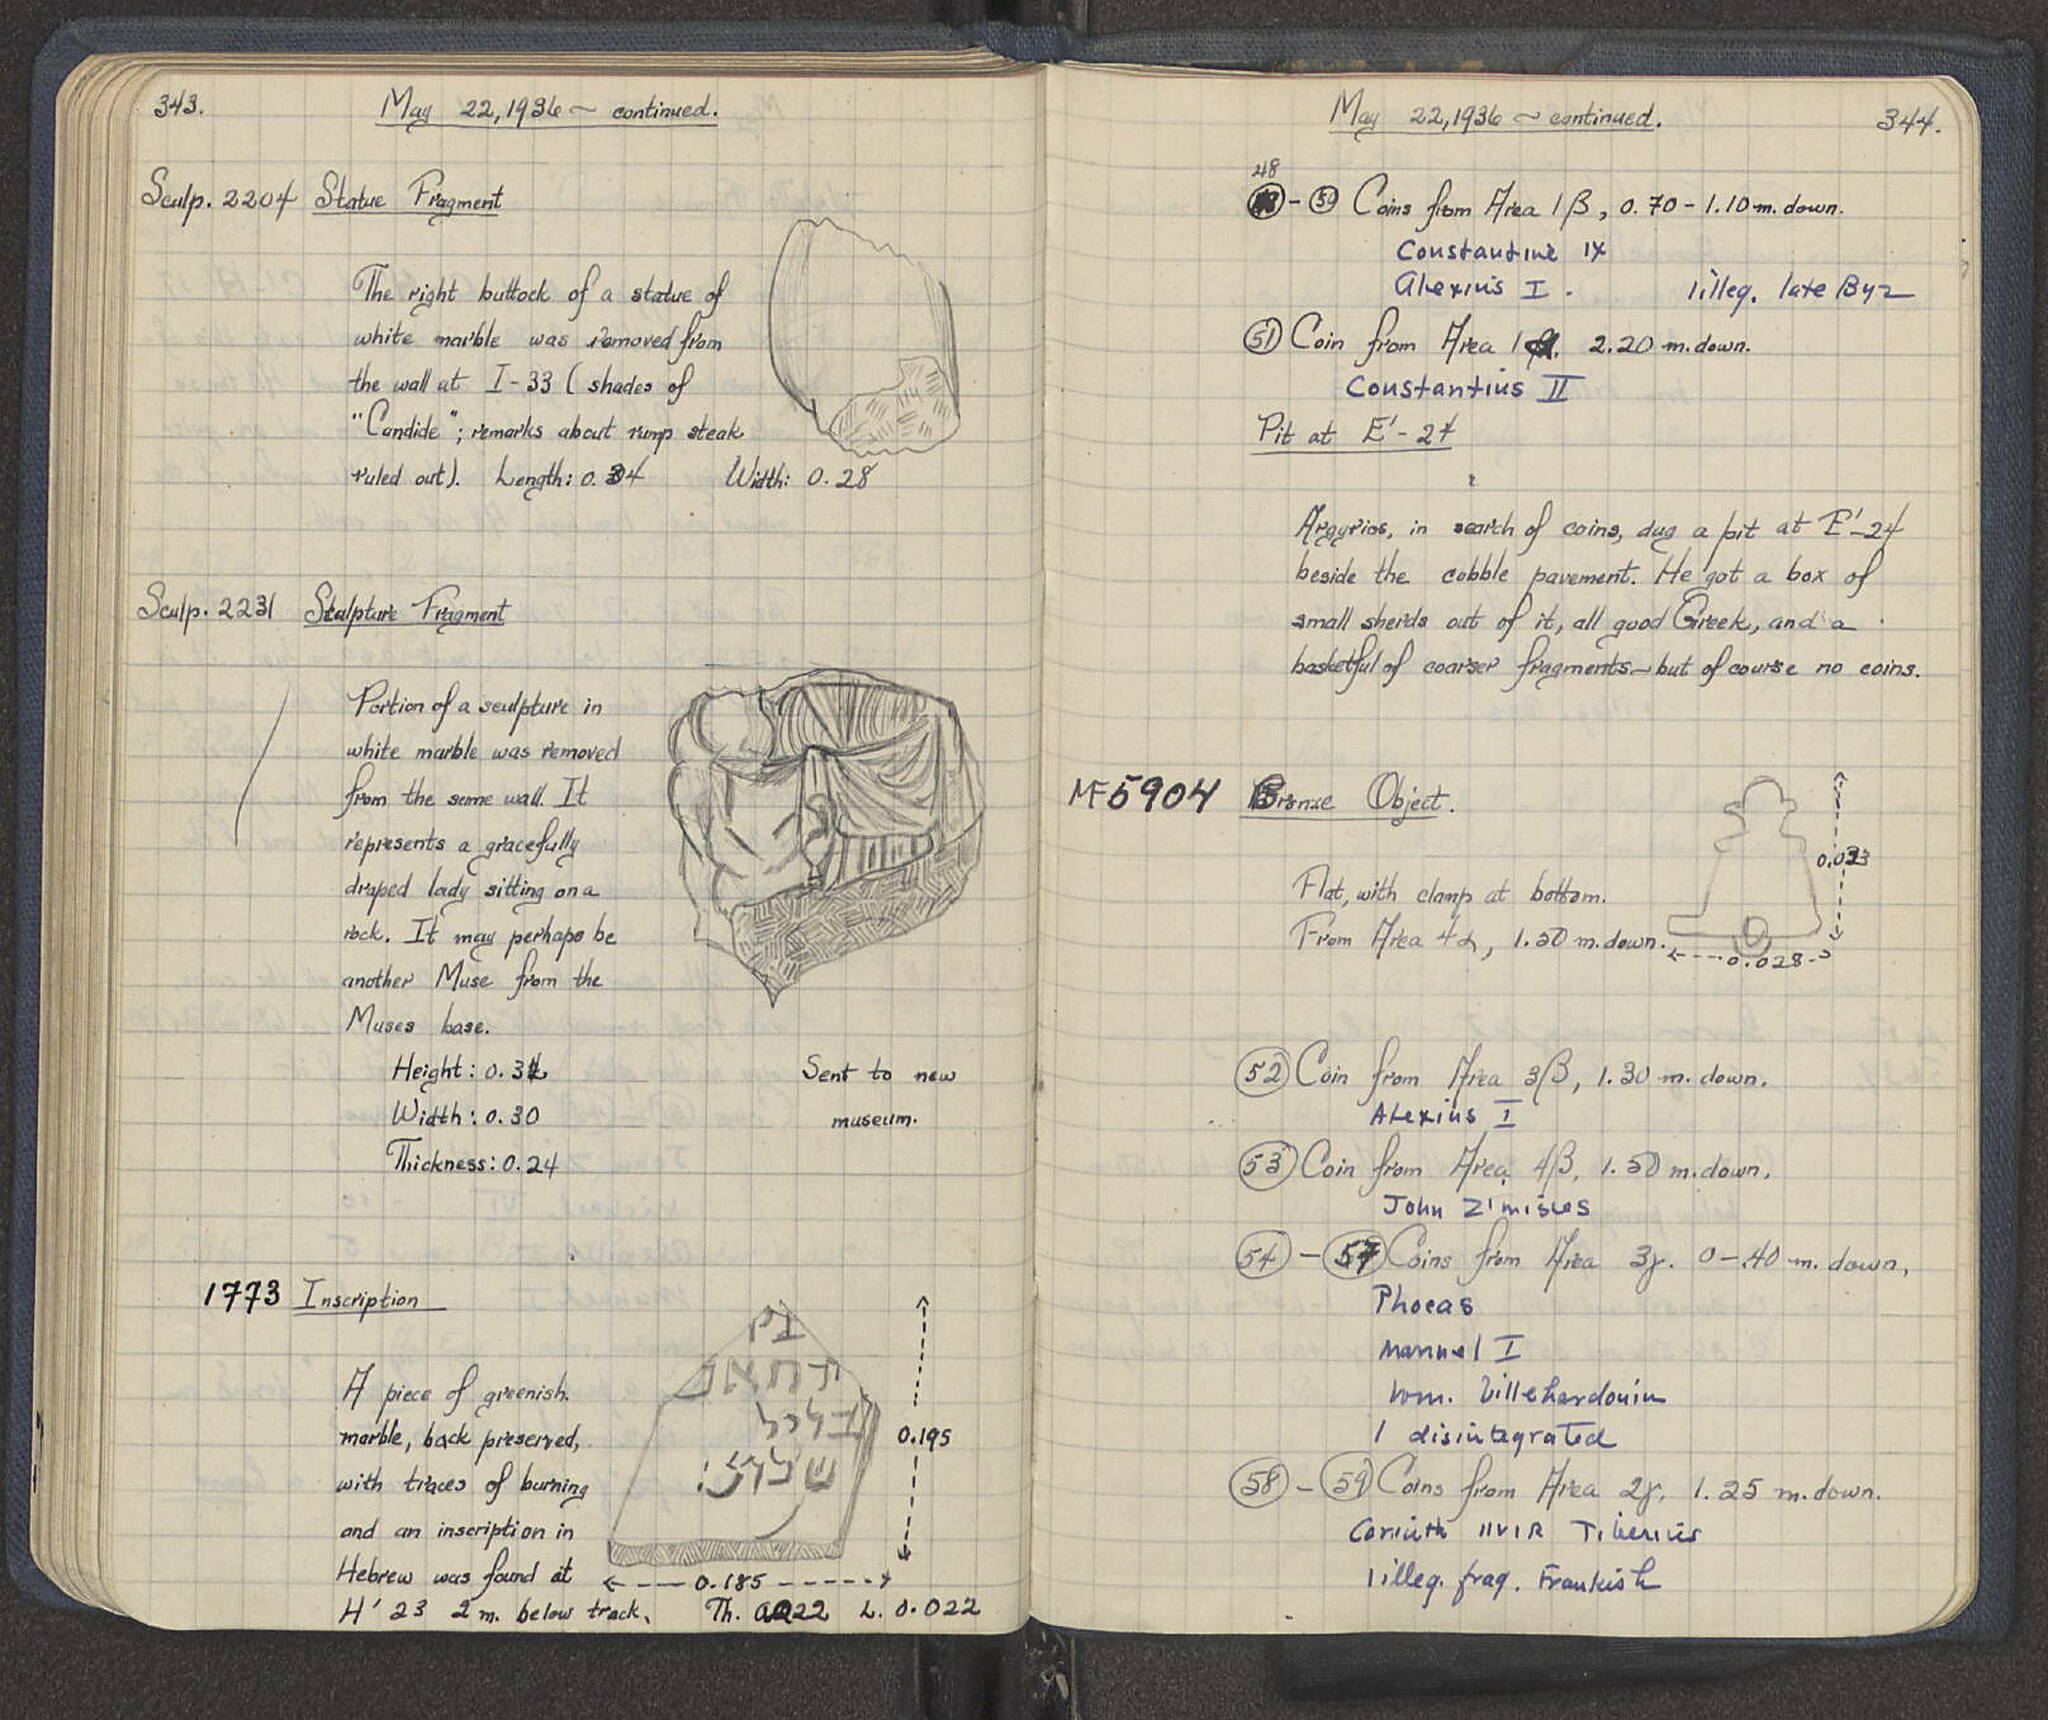 343.
May 22, 1936 ~ continued.
Sculp. 2204 Statue Fragment
The right buttock of a statue of
white marble was removed from
the wall at I-33 (shades of
"Candide"; remarks about rump steak
ruled out). Length: 0.34 Width: 0.28
Sculp. 2231 Sculpture Fragment
Portion of a sculpture in
white marble was removed
from the same wall. It
represents a gracefully
draped lady sitting on a
rock. It may perhaps be
another Muse from the
Muses base.
Height: 0.31
Width: 0.30
Thickness: 0.24
Sent to new
museum.
1773 Inscription
A piece of greenish
marble, back preserved,
with traces of burning
and an inscription in
Hebrew was found at
H' 23 2 m. below track. Th. 0.022 L. 0.022
0.195
0.185
May 22, 1936 ~ continued.
344.
48
- 50 Coins from Area 1β, 0.70 - 1.10 m. down.
Constantine IX
Alexius I. 1 illeg. late Byz
51 Coin from Area 1 2.20 m. down.
Constantius II
Pit at E'-24
Argyrios, in search of coins, dug a pit at E'-24
beside the cobble pavement. He got a box of
small sherds out of it, all good Greek, and a
basketful of coarser fragments - but of course no coins.
MF 5904 Bronze Object.
Flat, with clamp at bottom.
From Area 4α, 1.50 m. down.
0.033
0.028
52 Coin from Area 3β, 1.30 m. down.
Alexius I
53 Coin from Area 4β, 1.50 m. down.
John Zimisces
54 - 57 Coins from Area 3γ. 0-.40 m. down,
Phocas
Manuel I
Wm. Villehardouin
1 disintegrated
58 - 59 Coins from Area 2γ. 1.25 m. down.
Corinth IIVIR Tiberius
1 illeg. frag. Frankish